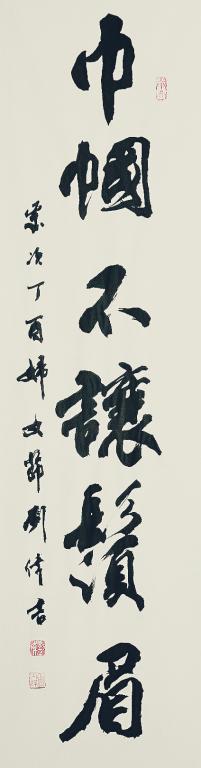 巾帼不讓鬚眉
歲次丁酉婦女節劉偉吉